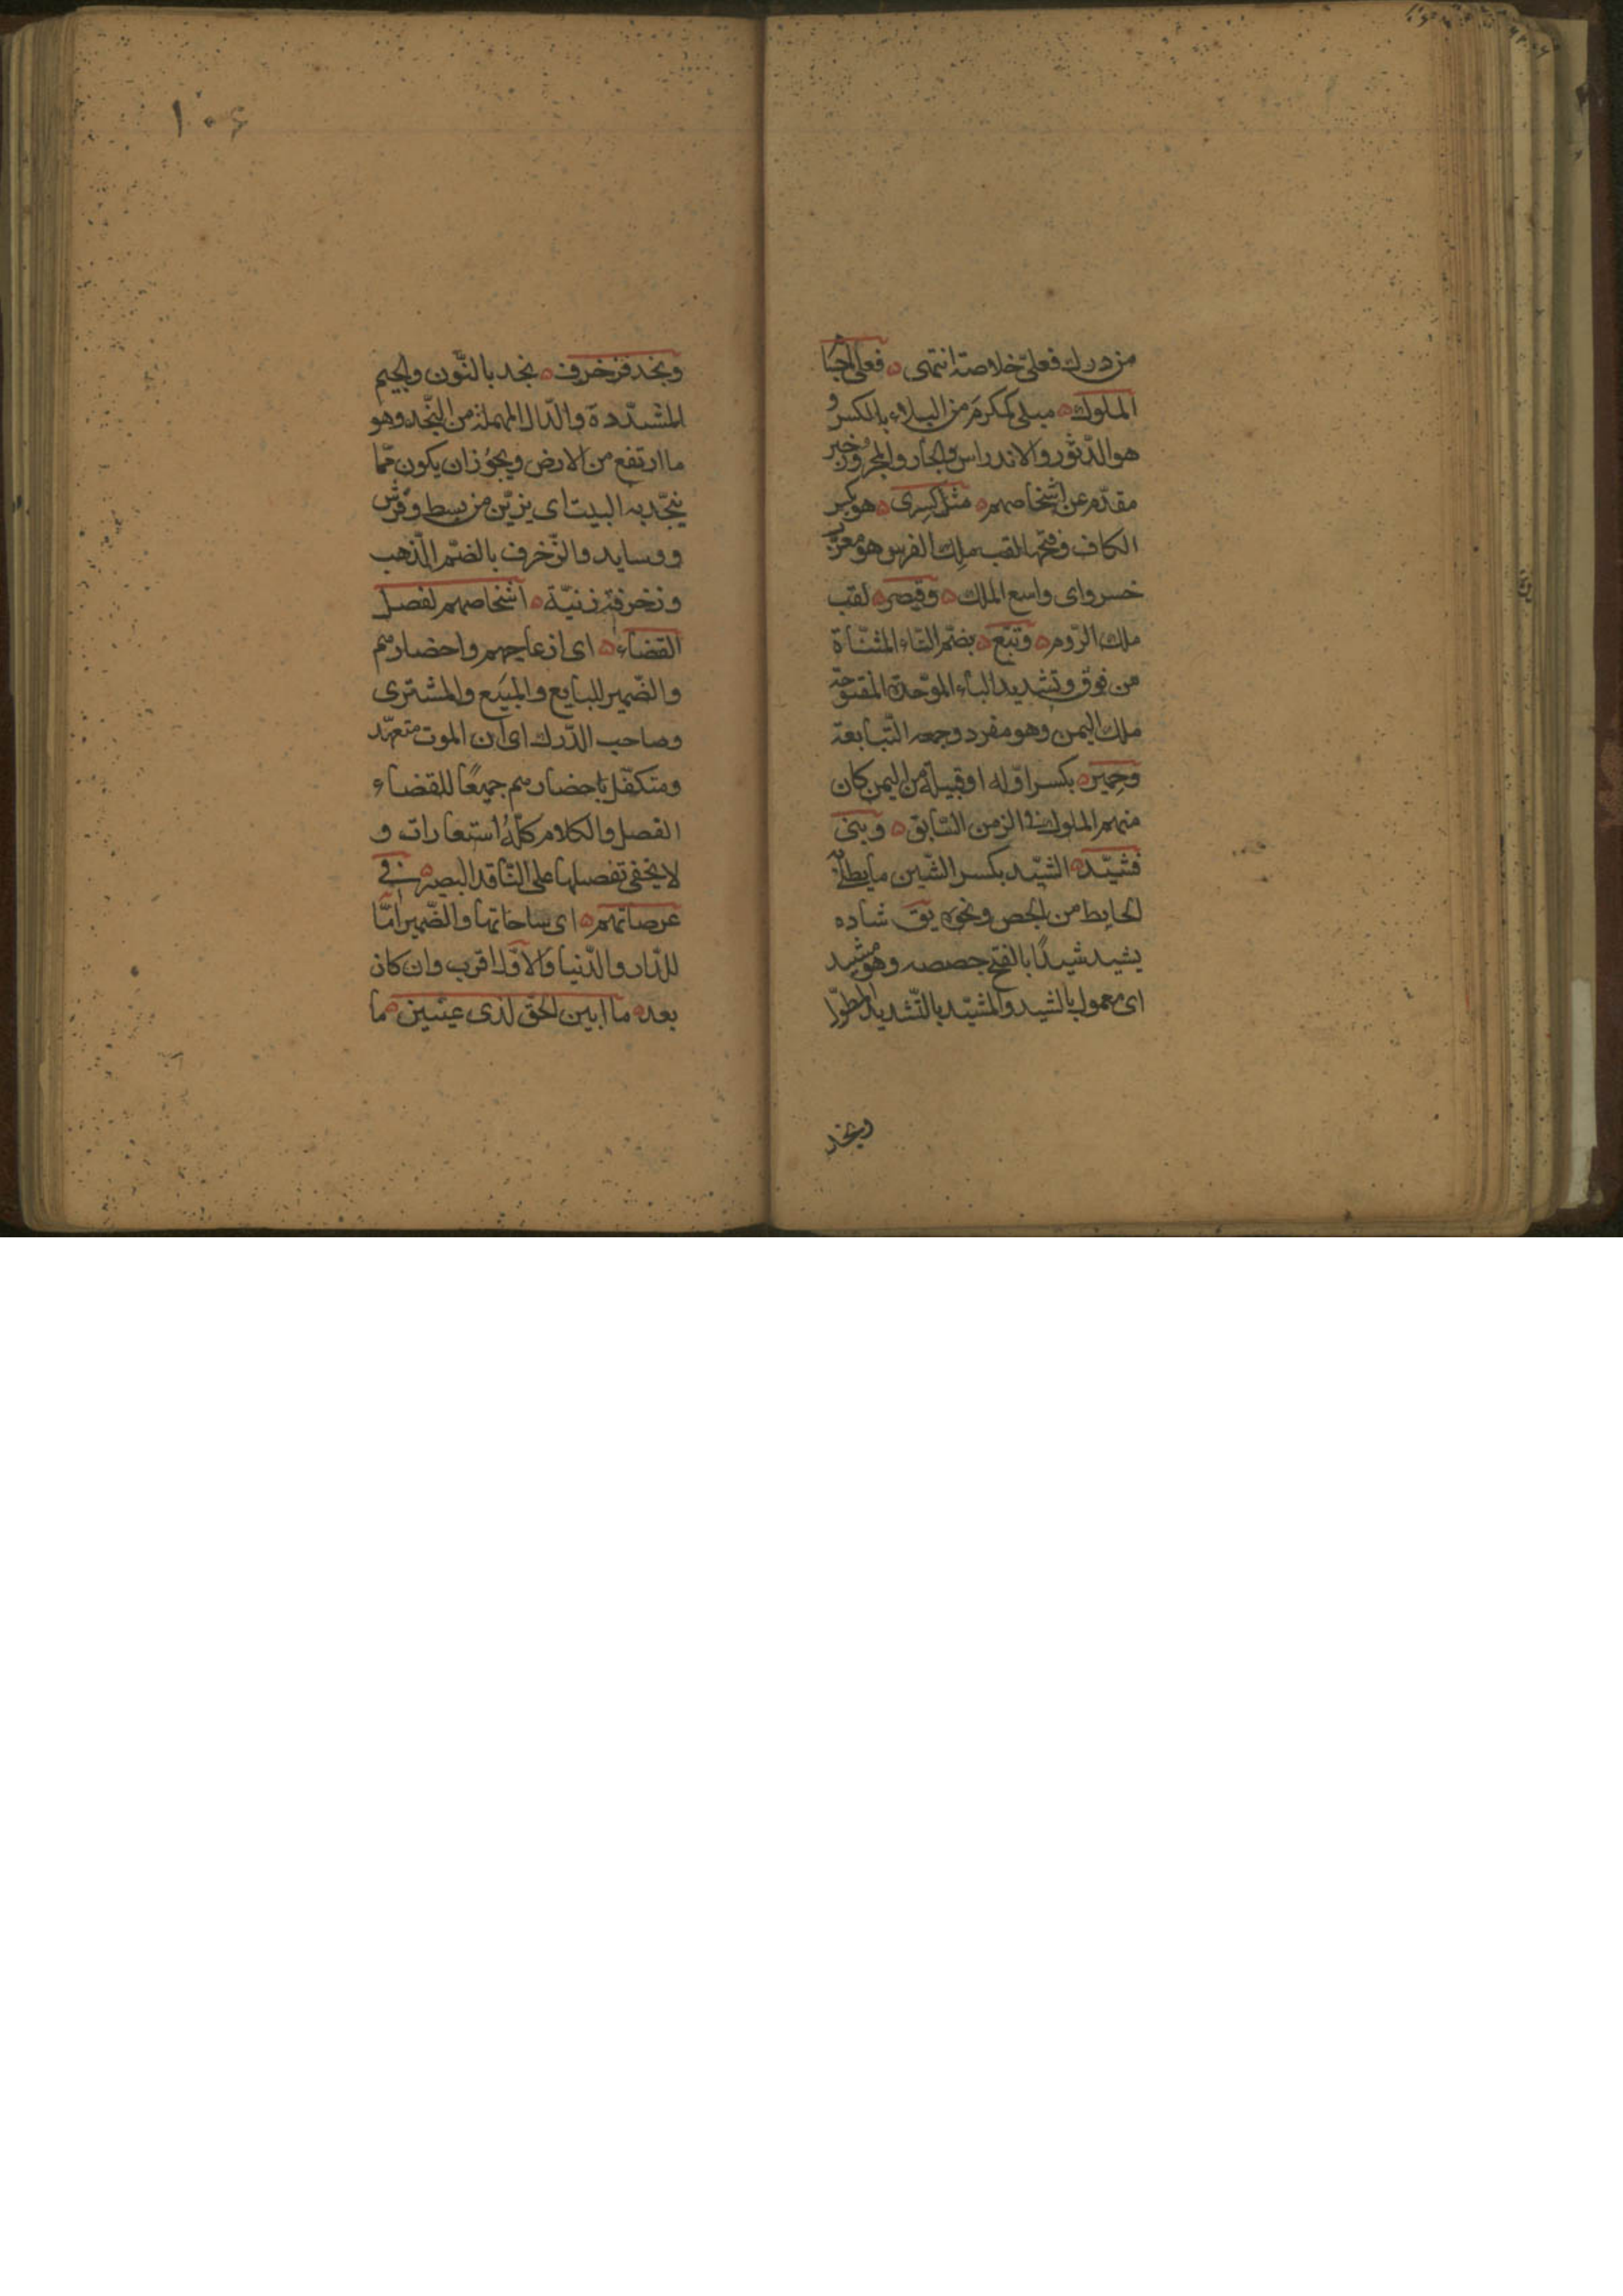 من درك فعلىّ خلاصته انتهى ه فعلى
الملوك ه مبلى كمكرم من البلاء بالكسر و
هو الدّثور والاندراس والجار والمجرور خبر
مقدّم عن اشخاصهم ه مثل كسرى ه هو بكسر
الكاف وفتحها لقب ملك الفرس هو معرّب
خسرو اى واسع الملك ه وقيصر ه لقب
ملك الرّوم ه وتبّع ه بضمّ التّاء المثنّاة
من فوق وتشديد الباء الموّحدة المفتوحة
ملك اليمن وهو مفرد وجمعه التّبابعة
وحمير ه بكسر اوّله او قبيلة من اليمن كان
منهم الملوك فى الزمن السّابق ه وبنى
فشيّد ه الشيّد بكسر الشّين ما يطلى به
الحايط من الجص ونحوه يق شاده
يشيد شيدًا بالفتح جصصه وهو مشيد
اى معمول بالشيد والمشيّد بالتّشديد المطوّل
ونجد
۱۰۶
ونجد فزخرف ه نجد بالنّون والجيم
المشدّدة والدّال المهملة من النّجد وهو
ما ارتفع من الارض ويجوز ان يكون ممّا
ينجّد به البيت اى يزيّن من بسط وفرش
ووسايد والزّخرف بالضّم الذّهب
وزخرفة زنيّة ه اشخاصهم لفصل
القضاء ه اى ازعاجهم واحضارهم
والضّمير للبايع والمبيع والمشترى
وصاحب الدّرك اى ان الموت متعهّد
ومتكفّل باحضارهم جميعًا للقضاء
الفصل والكلام كلّه استعارات و
لا يخفى تفصيلها على النّاقد البصير ه فى
عرصاتهم ه اى ساحاتها والضّمير امّا
للدّار والدّنيا والاوّل اقرب وان كان
بعد ه ما ابين الحقّ لذى عينين ه ما